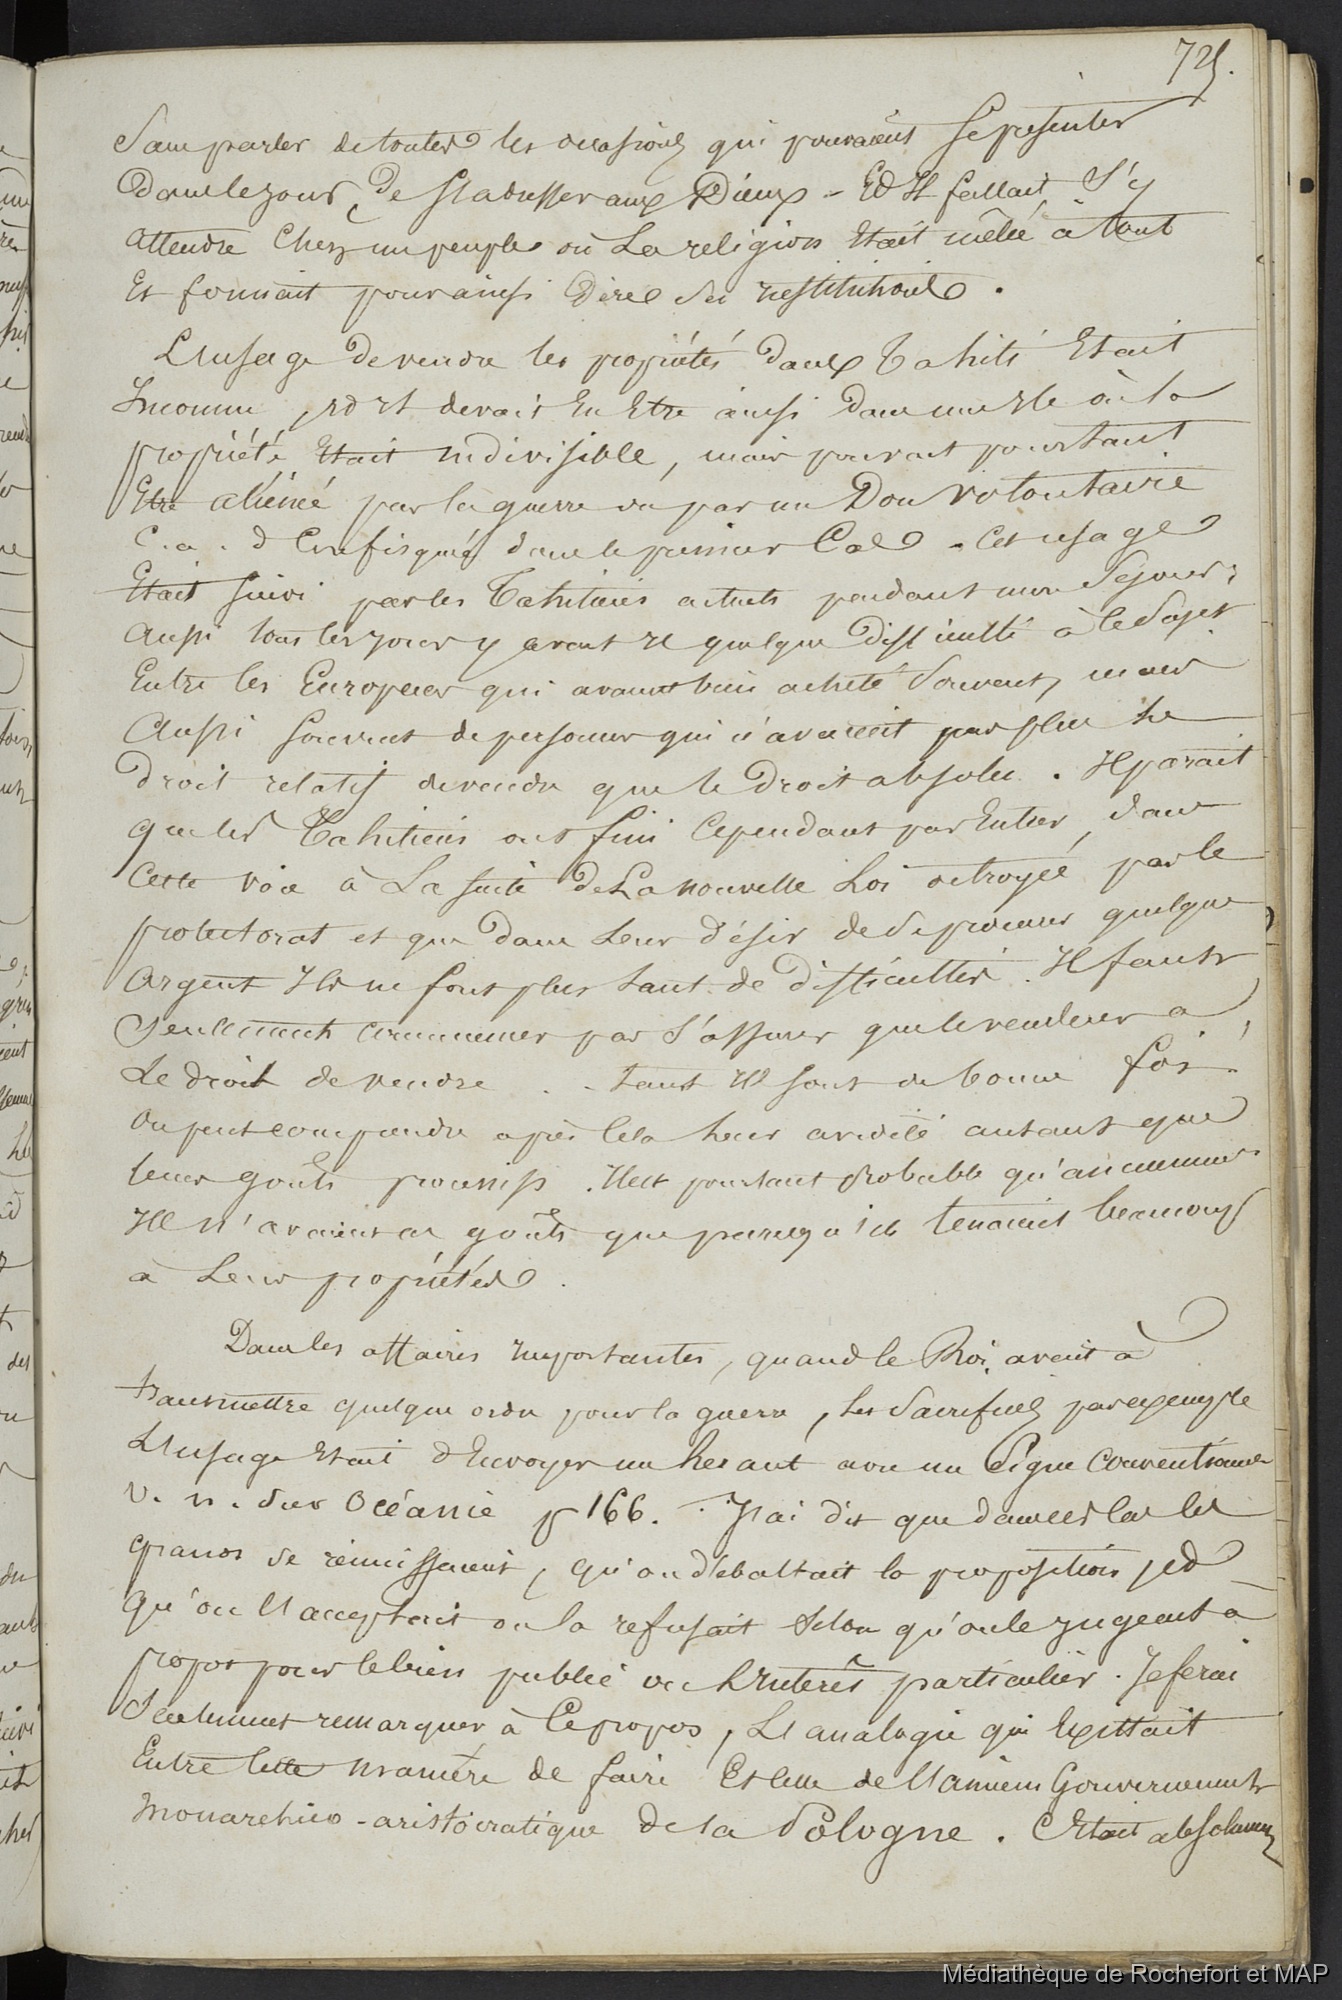 725.
Sans parler de toutes les occasions qui pouvaient se présenter
Dans le jour, De s'adresser aux Dieux - Et Il fallait s'y
attendre Chez un peuple où La religion Etait mêlée à tout
Et formait pour ainsi Dire ses institutions.
L'usage de vendre les propriétés Dans Tahiti Etait
Inconnu, Et Il devait En Etre ainsi Dans une Ile où la
propriété Etait indivisible, mais pouvait pourtant
Etre aliénée par la guerre ou par un Don volontaire
C. a. d Confisquée dans le premier Cas - Cet usage
Etait suivi par les Tahitiens actuels pendant mon Séjour;
Aussi tous les jours y avait Il quelque Difficulté à ce Sujet
Entre les Européens qui avaient bien acheté Souvent, mais
Aussi souvent de personnes qui n'avaient pas plus le
Droit relatif de vendre que le Droit absolu. Il parait
que les Tahitiens ont fini Cependant par Entrer, dans
Cette voie à La suite De La nouvelle Loi octroyée par le
protectorat et que Dans Leur Désir de Se procurer quelque
Argent Ils ne font plus tant de Difficultés. Il faut
Seulement commencer par S'assurer que le vendeur a,
Le droit de vendre .. tant Ils sont de bonne foi.
On peut comprendre après Cela Leur avidité autant que
leurs goûts processifs. Il est pourtant probable qu'anciennement
Ils n'avaient ce goût que parcequ'ils tenaient beaucoup
à Leurs propriétés.
Dans les affaires importantes, quand le Roi avait à
transmettre quelque ordre pour la guerre, les Sacrifices par exemple
L'usage Etait d'Envoyer un heraut avec un Signe Conventionnel
V. n. sur Océanie p 166. J'ai dit que dans ces Cas les
grands se réunissaient, qu'on débattait la proposition, Et
qu'on l'acceptait ou la refusait selon qu'on le jugeait à
propos pour le bien public ou l'Intérêt particulier. Je ferai
Seulement remarquer à Ce propos, L'analogie qui Existait
Entre Cette manière de faire Et Celle de l'ancien Gouvernement
Monarchico-aristocratique de la Pologne. C'Etait absolument
Médiathèque de Rochefort et MAP